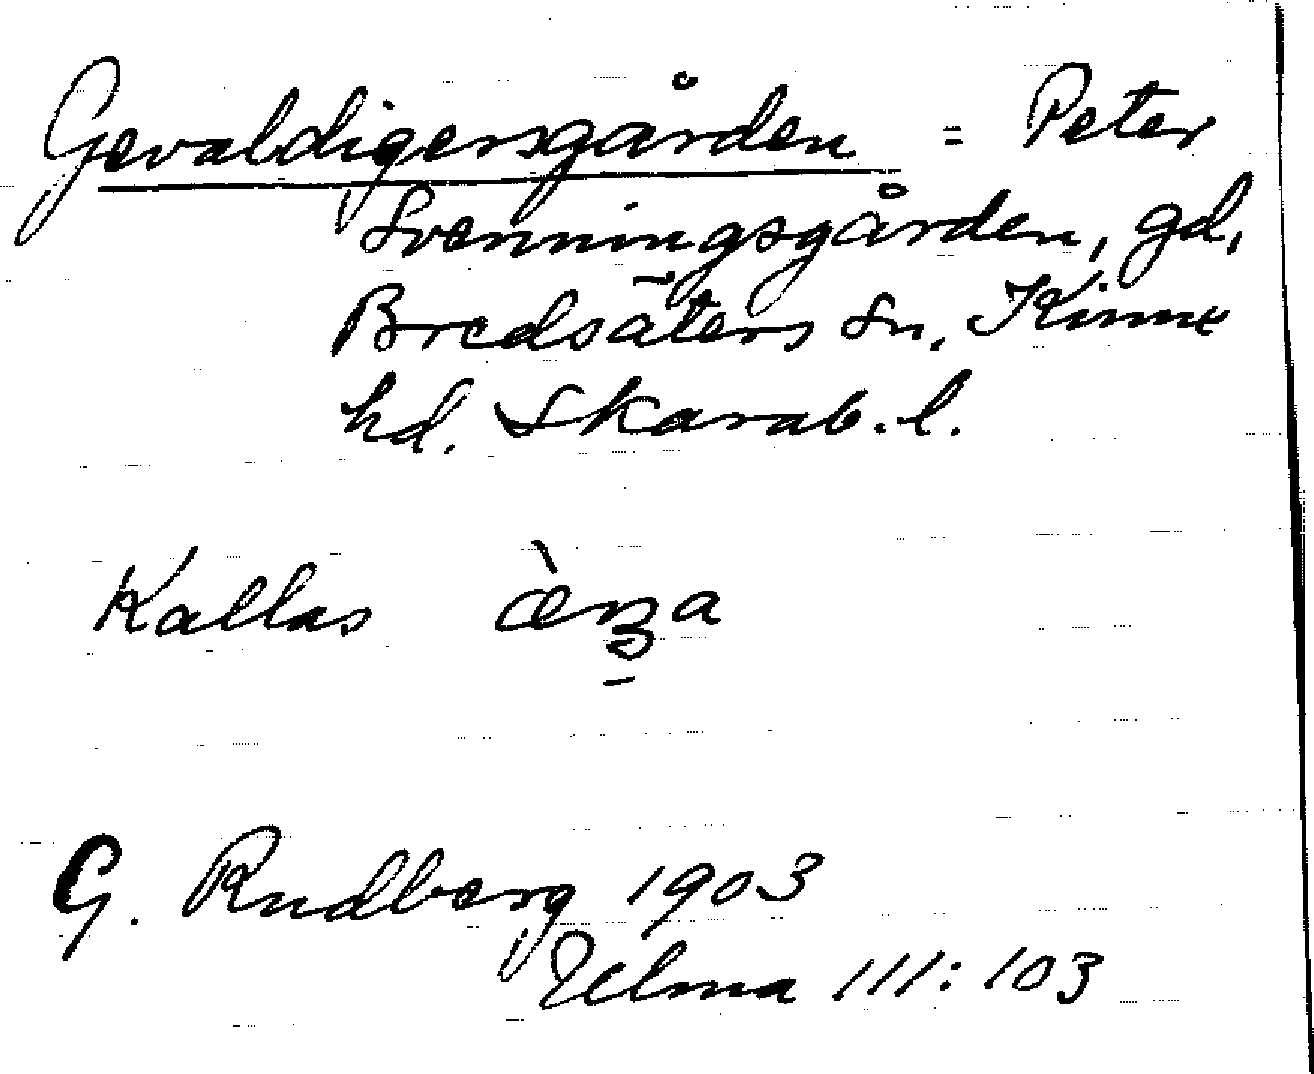 Gevaldigersgården = Peter
Svenningsgården, gd,
Bredsäters sn, Kinne
hd. Skarab. l.
Kallas
G. Rudberg 1903
Ulma 111:103